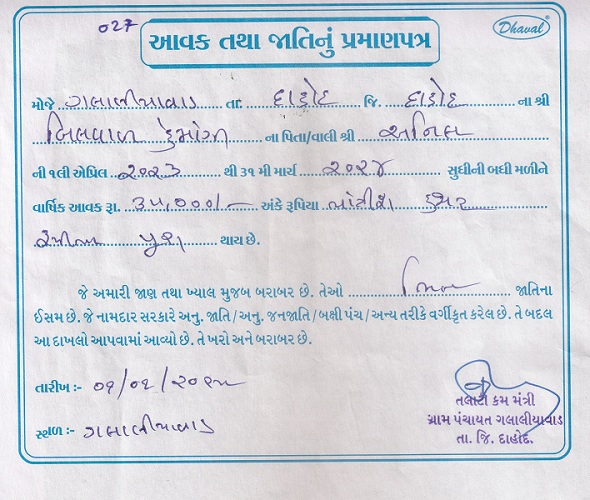 027
આવક તથા જાતિનું પ્રમાણપત્ર
Dhaval
મોજે ગલાલીયાવાડ તા. દાહોદ જિ. દાહોદ ના શ્રી
બિલવાળ હેમાંગી ના પિતા/વાલી શ્રી અનિલ
ની ૧લી એપ્રિલ ૨૦૨૩ થી ૩૧ મી માર્ચ ૨૦૨૪ સુધીની બધી મળીને
વાર્ષિક આવક રૂા. ૩૫,૦૦૦/- અંકે રૂપિયા પાંત્રીશ હજાર
પુરા થાય છે.
જે અમારી જાણ તથા ખ્યાલ મુજબ બરાબર છે. તેઓ ભિલ જાતિના
ઈસમ છે. જે નામદાર સરકારે અનુ. જાતિ/અનુ. જનજાતિ/બક્ષી પંચ/અન્ય તરીકે વર્ગીકૃત કરેલ છે. તે બદલ
આ દાખલો આપવામાં આવ્યો છે. તે ખરો અને બરાબર છે.
તારીખ :-
તલાટી કમ મંત્રી
ગ્રામ પંચાયત ગલાલીયાવાડ
તા. જિ. દાહોદ.
સ્થળ :- ગલાલીયાવાડ